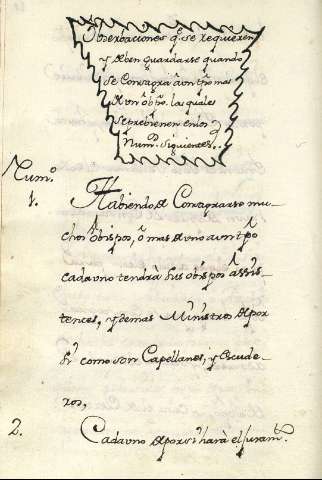 Observaciones q̃ se requieren
y deben Guardarse quando
se Consagrã â un tpõ mas
de un obpõ. las quales
se previenen en los
Num.s siguientes.
Num.o
1. Habiendo, de Consagrarse mu-
chos obispos, o mas de uno a un tpõ
cada uno tendrà sus obispos assis-
tentes, y demas Ministros de por
si como son Capellanes, y Escude-
ros,
2. Cada uno de por si harà el juram.to